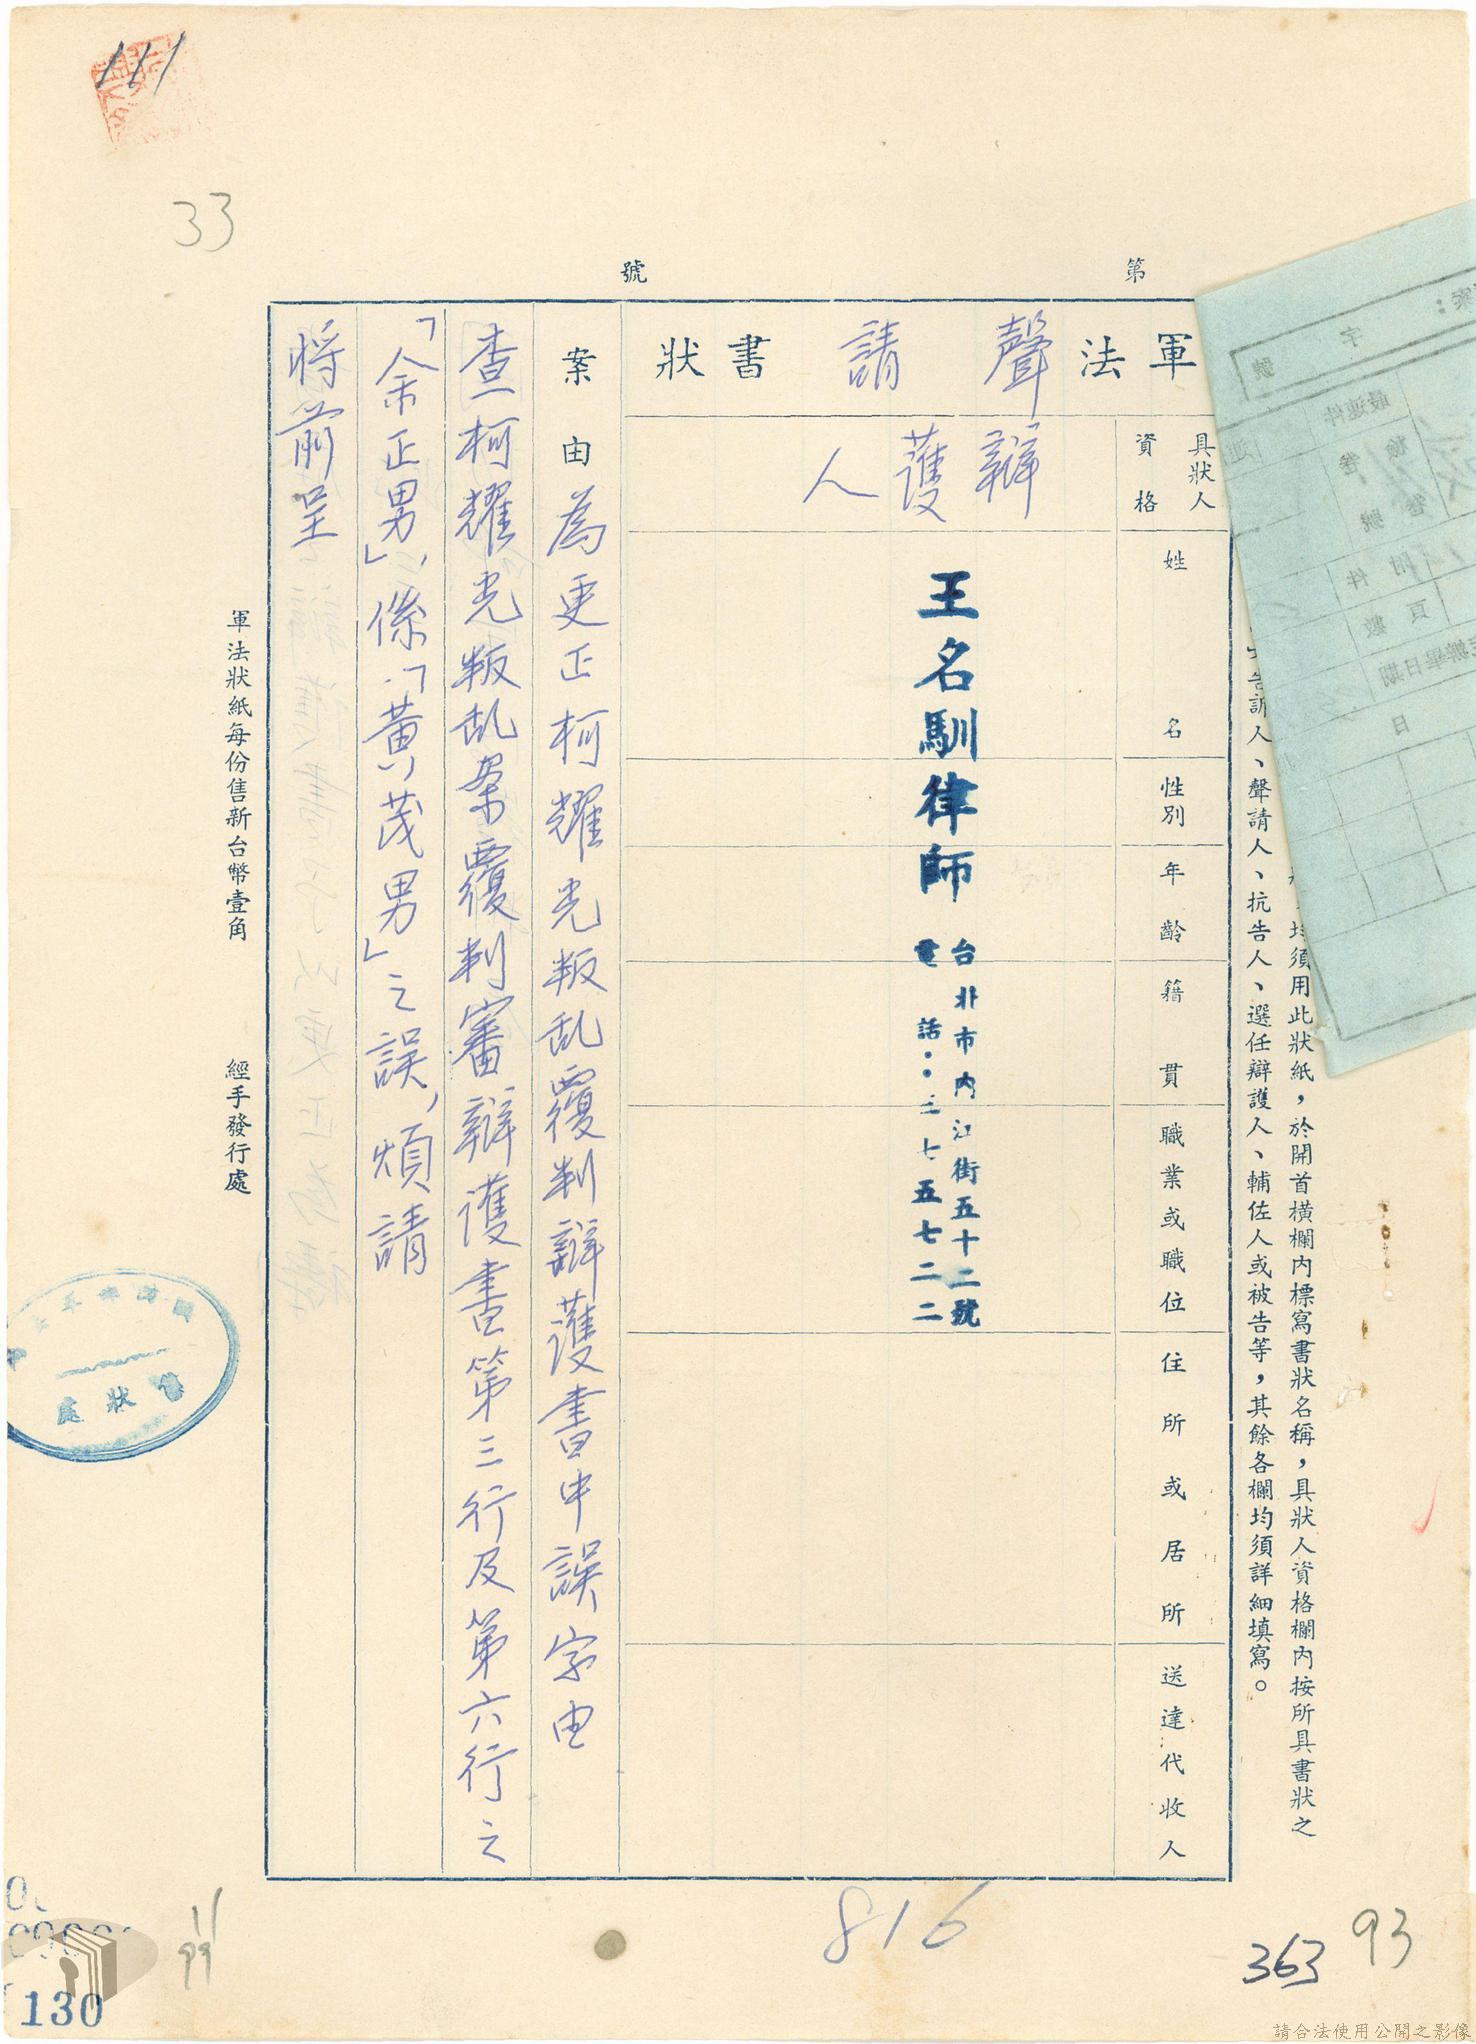 161
33
第　號
軍法聲請書狀
具狀人資格
姓名
性別
年齡
籍貫
職業或職位
住所或居所
送達代收人
辯護人
王名馴律師
台北市內江街五十二號
電話：三七五七二二
案由為更正柯耀光叛乱覆判辯護書中誤字由
查柯耀光叛乱案覆判審辯護書第三行及第六行之
「余正男」，係「黃茂男」之誤，煩請
將前呈
均須用此狀紙，於開首橫欄內標寫書狀名稱，具狀人資格欄內按所具書狀之
告訴人、聲請人、抗告人、選任辯護人、輔佐人或被告等，其餘各欄均須詳細填寫。
軍法狀紙每份售新台幣壹角　經手發行處
售狀處
816
363
93
130
請合法使用公開之影像